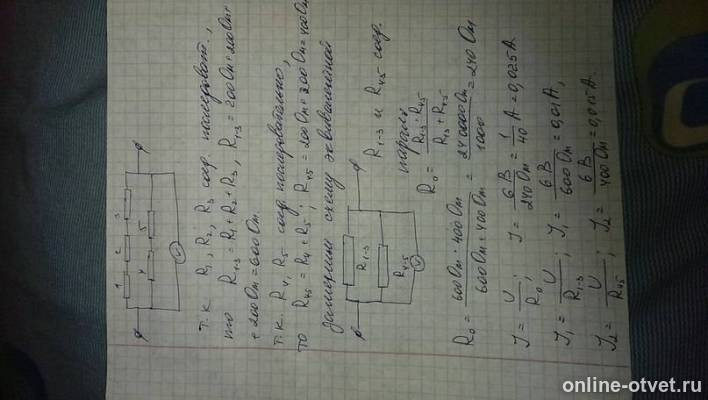 1 2 3
4 5
V
т.к. R₁, R₂, R₃ соед. последоват.,
то R₁₋₃ = R₁ + R₂ + R₃, R₁₋₃ = 200 Ом + 200 Ом +
+ 200 Ом = 600 Ом.
т.к. R₄, R₅ соед. последовательно,
то R₄₅ = R₄ + R₅; R₄₅ = 200 Ом + 200 Ом = 400 Ом
Заменим схему эквивалентной
R₁₋₃
R₄₋₅
V
R₁₋₃ и R₄₅ соед.
паралл.
R₀ = R₁₃ · R₄₅ / R₁₃ + R₄₅
R₀ = 600 Ом · 400 Ом / 600 Ом + 400 Ом = 24 0000 Ом / 1000 = 240 Ом
J = U / R₀; J = 6 В / 240 Ом = 1 / 40 А = 0,025 А.
J₁ = U / R₁₋₃; J₁ = 6 В / 600 Ом = 0,01 А,
J₂ = U / R₄₅; J₂ = 6 В / 400 Ом = 0,015 А.
online-otvet.ru